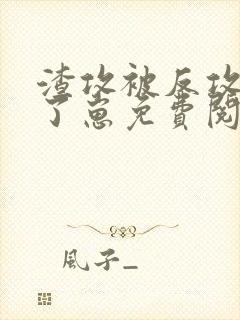 渣攻被反攻
了崽免费阅
風子_